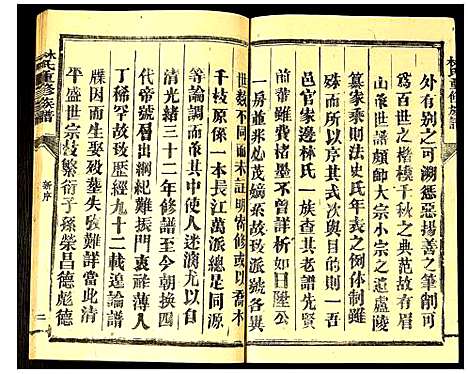 林氏重修族譜
外有别之可溯懲惡揚善之筆削可
爲百世之楷模千秋之典范故有眉
山家世譜顏師大宗小宗之遺廬陵
纂家乘則法史氏年表之例体制雖
殊而所以序其式一也
邑官家邊林氏一族查其老譜先賢
前輩雖楮墨不曾詳析如曰陞公
一房並未必茂嬪宗故玫派號各異
世数不同而未証明寄修或以喬木
千枝原係一本長江萬派總是同源
等論調而求其人迷演尤以自
清光緒三十二年修譜至今朝換四
代帝號上出綱紀難振門衰祚薄人
丁稀罕故玫歷經九十二載遑論譜
牒因而生娶殁墓失敗難詳當此清
平盛世宗枝繁衍子孫榮昌德彪德
林氏重修族譜
新序
二